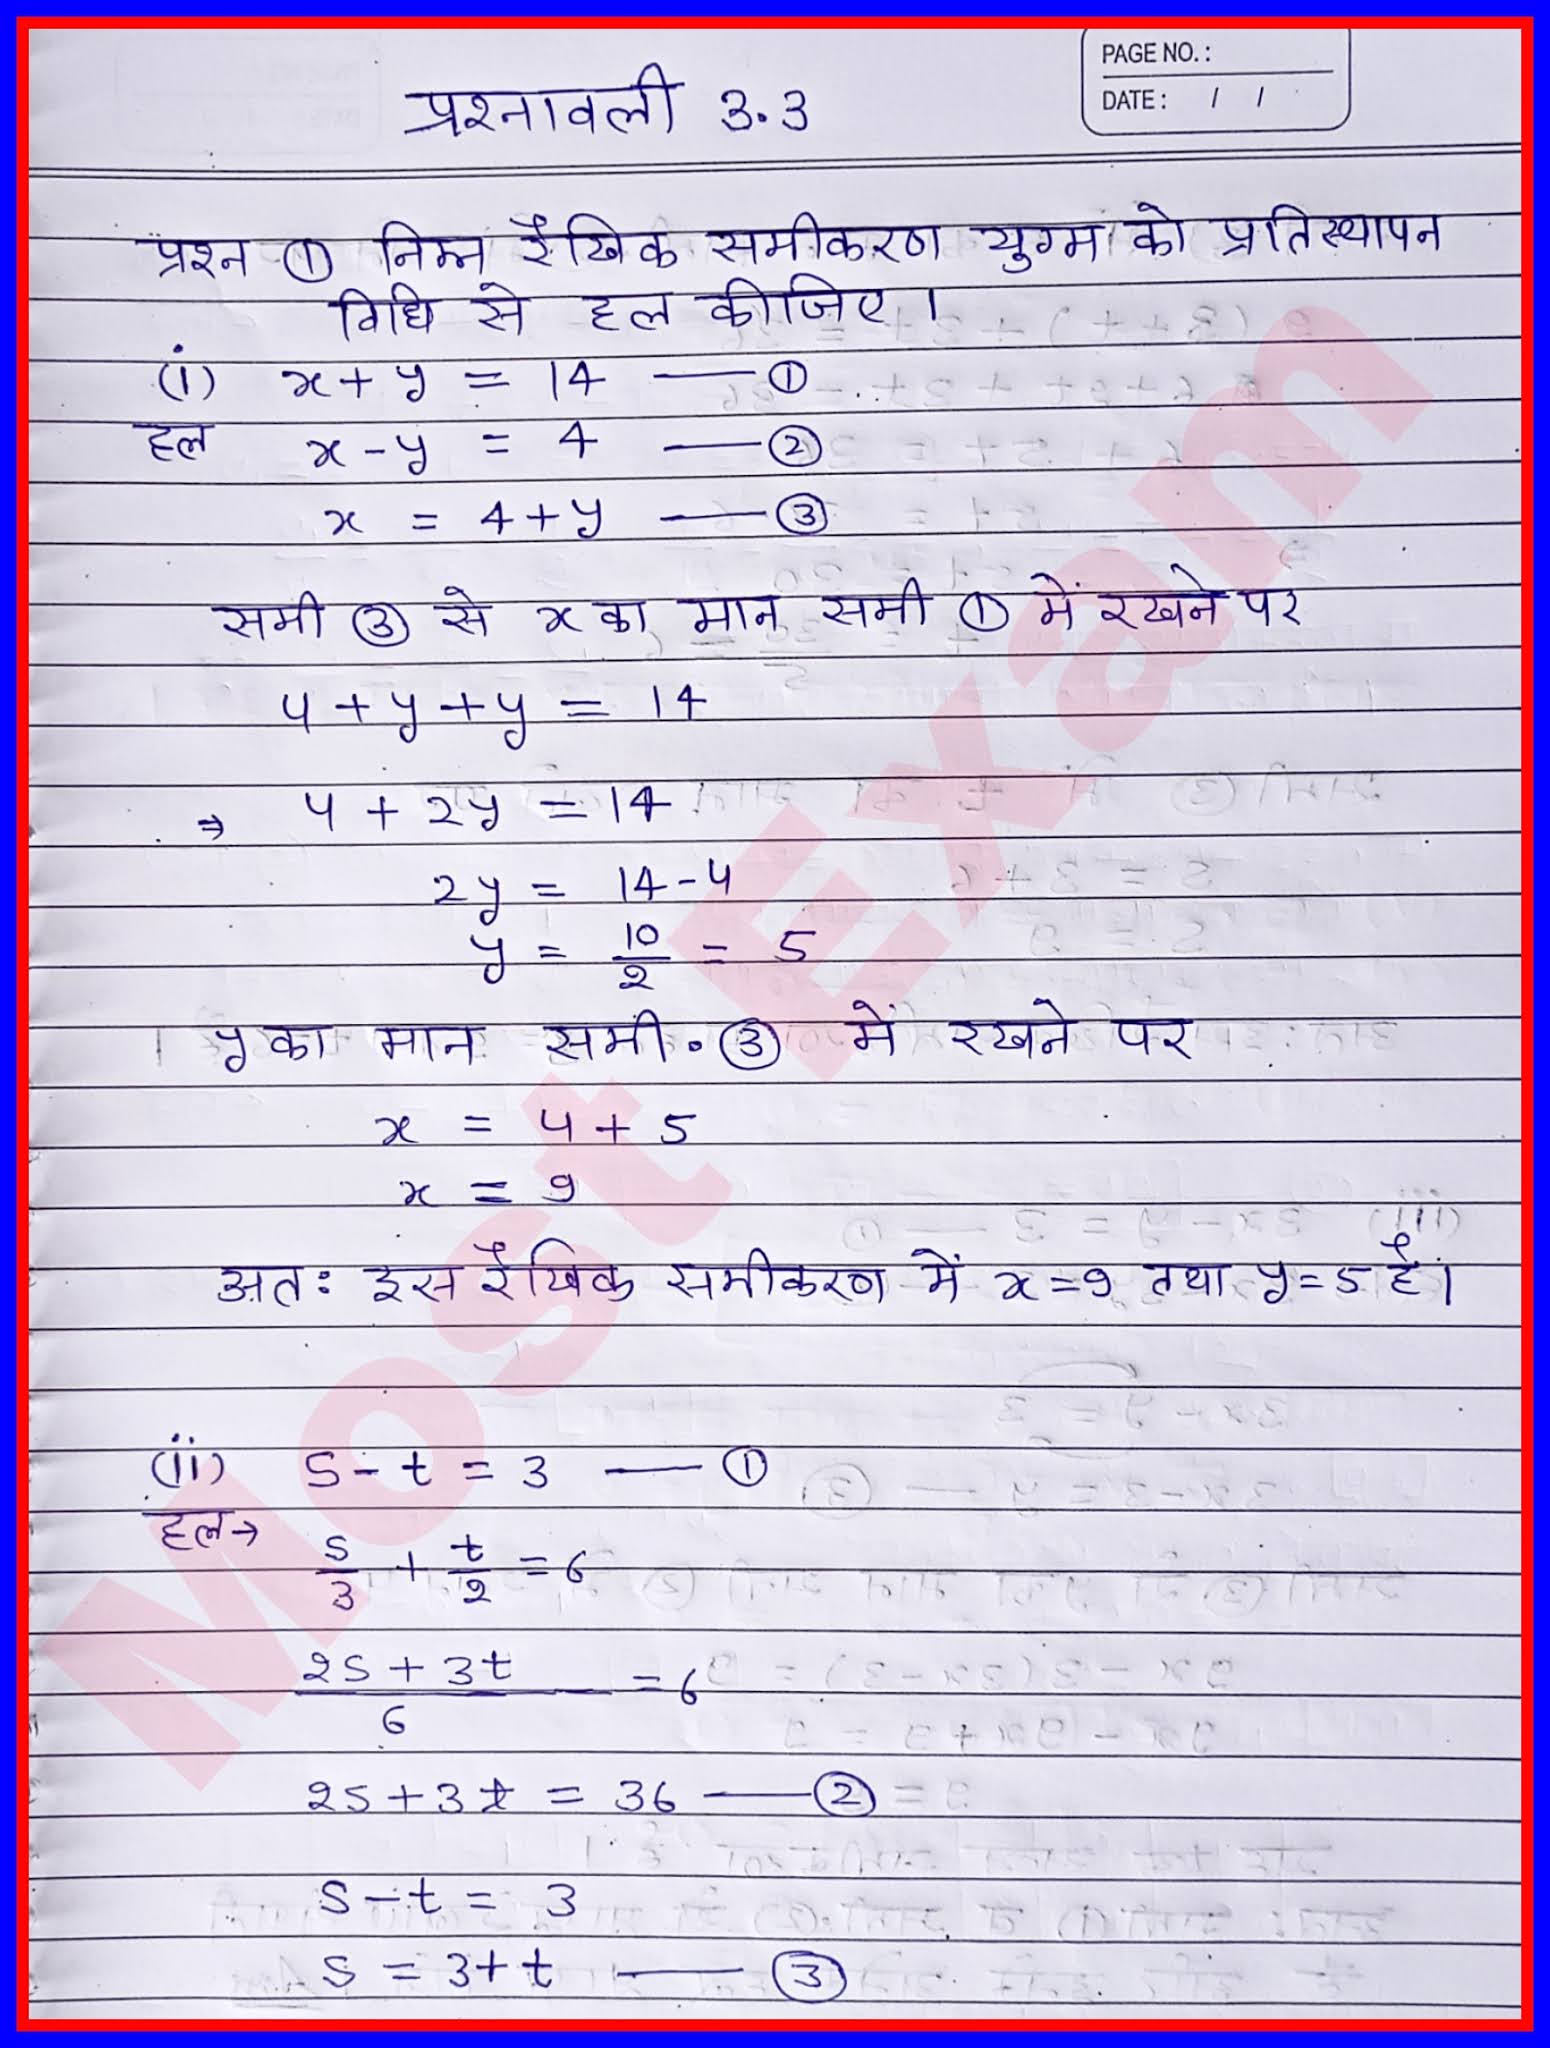 PAGE NO.:
DATE: / /
प्रश्नावली 3.3
प्रश्न ① निम्न रैखिक समीकरण युग्म को प्रतिस्थापन
विधि से हल कीजिए ।
(i) x + y = 14 — ①
हल x - y = 4 — ②
x = 4 + y — ③
समी ③ से x का मान समी ① में रखने पर
4 + y + y = 14
⇒ 4 + 2y = 14
2y = 14 - 4
y = 10/2 = 5
y का मान समी. ③ में रखने पर
x = 4 + 5
x = 9
अतः इस रैखिक समीकरण में x = 9 तथा y = 5 है।
(ii) s - t = 3 — ①
हल→
s/3 + t/2 = 6
2s + 3t / 6 = 6
2s + 3t = 36 — ②
s - t = 3
s = 3 + t — ③
Most Exam